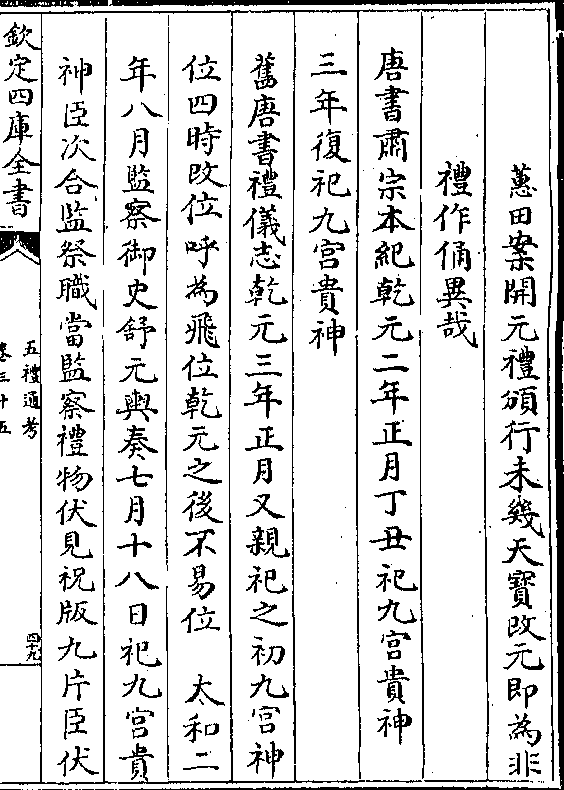 蕙田案開元禮頒行未幾天寶改元即為非
禮作俑異哉
唐書肅宗本紀乾元二年正月丁丑祀九宮貴神
三年復祀九宮貴神
舊唐書禮儀志乾元三年正月又親祀之初九宮神
位四時改位呼為飛位乾元之後不易位　太和二
年八月監察御史舒元輿奏七月十八日祀九宮貴
神臣次合監祭職當監察禮物伏見祝版九片臣伏
欽定四庫全書
五禮通考
卷三十五
四十九